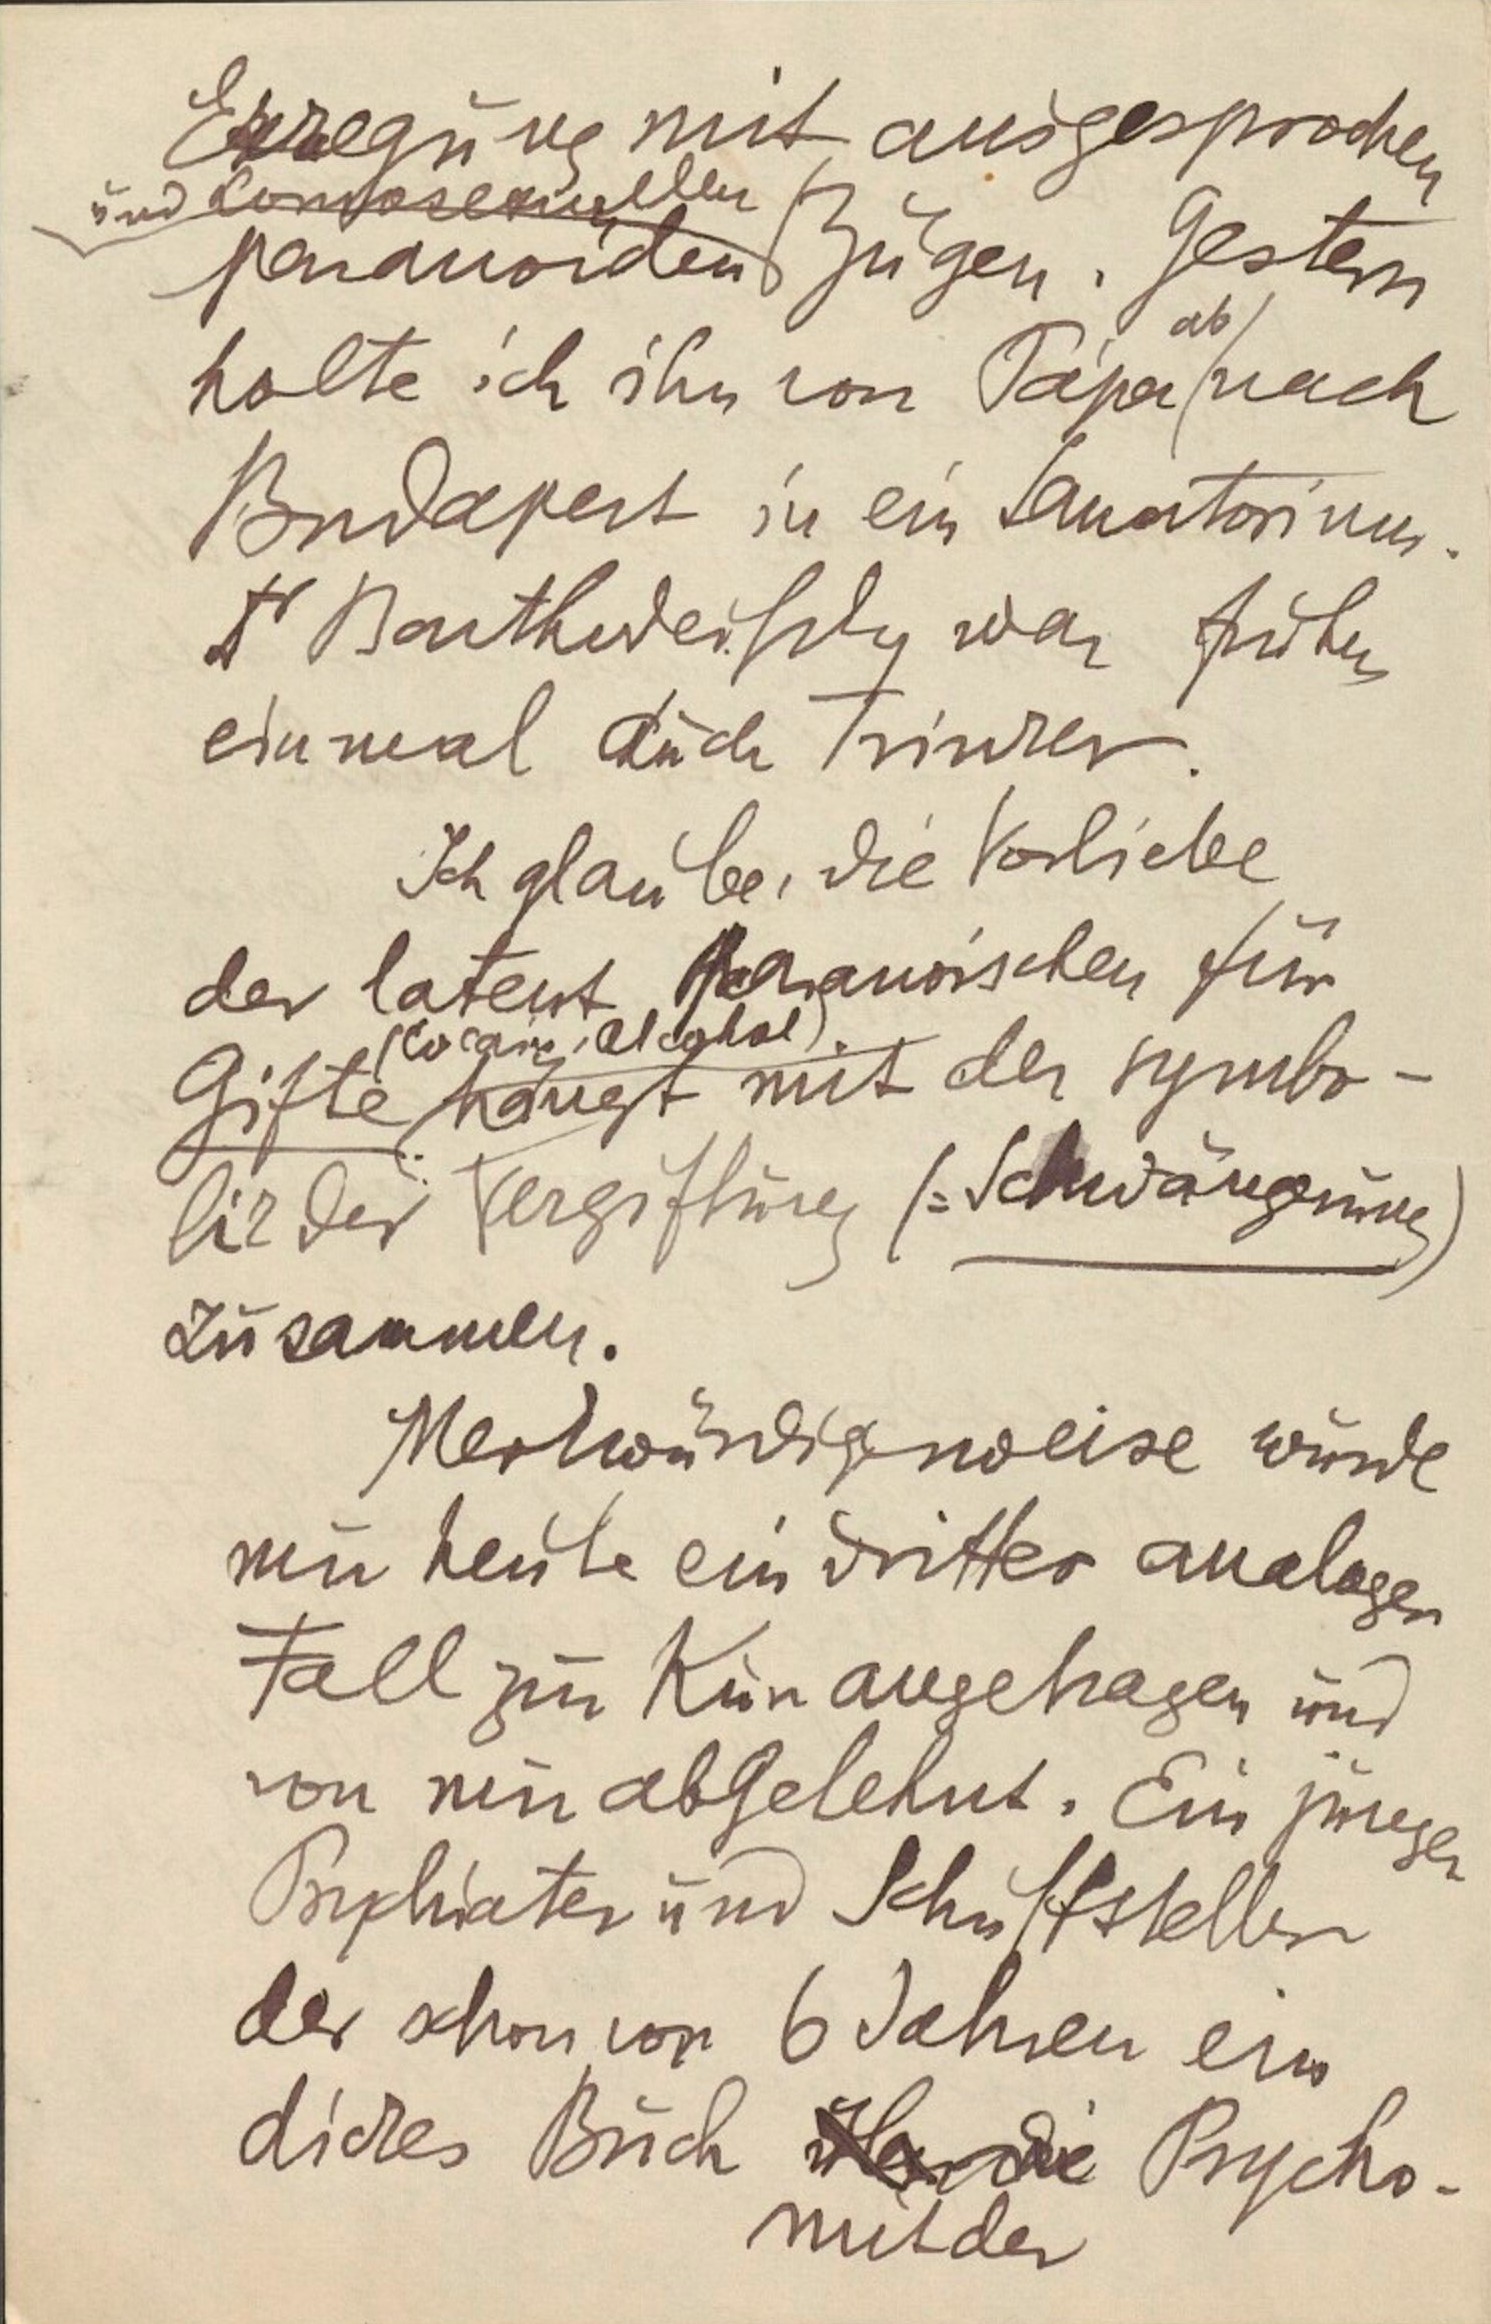 Erregung mit ausgesprochen
und homosexuellen
paranoiden Zügen. Gestern
ab
holte ich ihn von Pápa nach
Budapest in ein Sanatorium.
Dr war früher
einmal auch Trinker.
Ich glaube, die Vorliebe
der latent Paranoischen für
(Cocain, Alcohol)
Gifte hängt mit der symbo-
lik der Vergiftung (= Schwängerung)
zusammen.
Merkwürdigerweise wurde
mir heute ein dritter analoger
Fall zur Kur angetragen und
von mir abgelehnt. Ein junger
Psychiater und Schriftsteller
der schon vor 6 Jahren ein
dickes Buch über die Psycho-
mit der